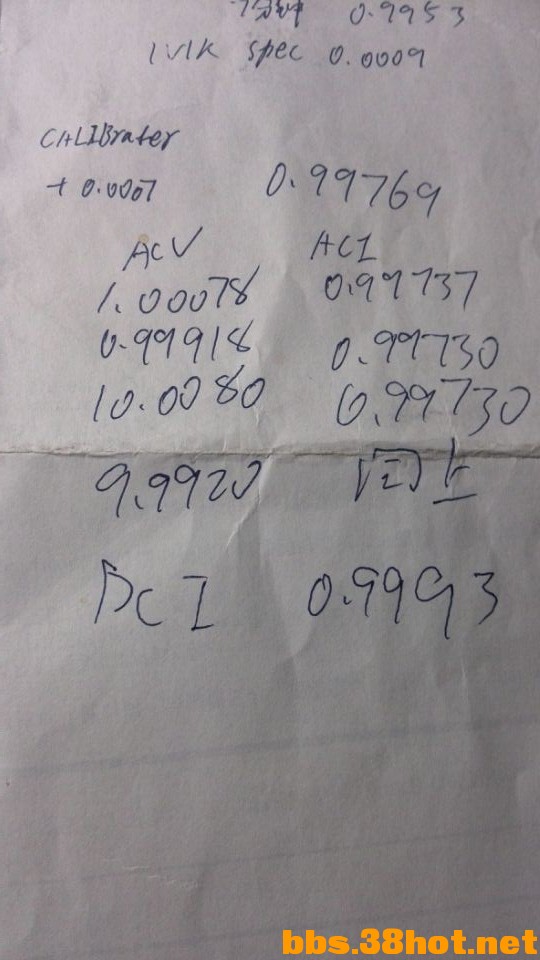 分钟 0.9953
1V1K spec 0.0009
CALIBrater
+0.0007 0.99769
ACV ACI
1.00078 0.99737
0.99918 0.99730
10.0080 0.99730
9.9920 同上
DCI 0.9993
bbs.38hot.net